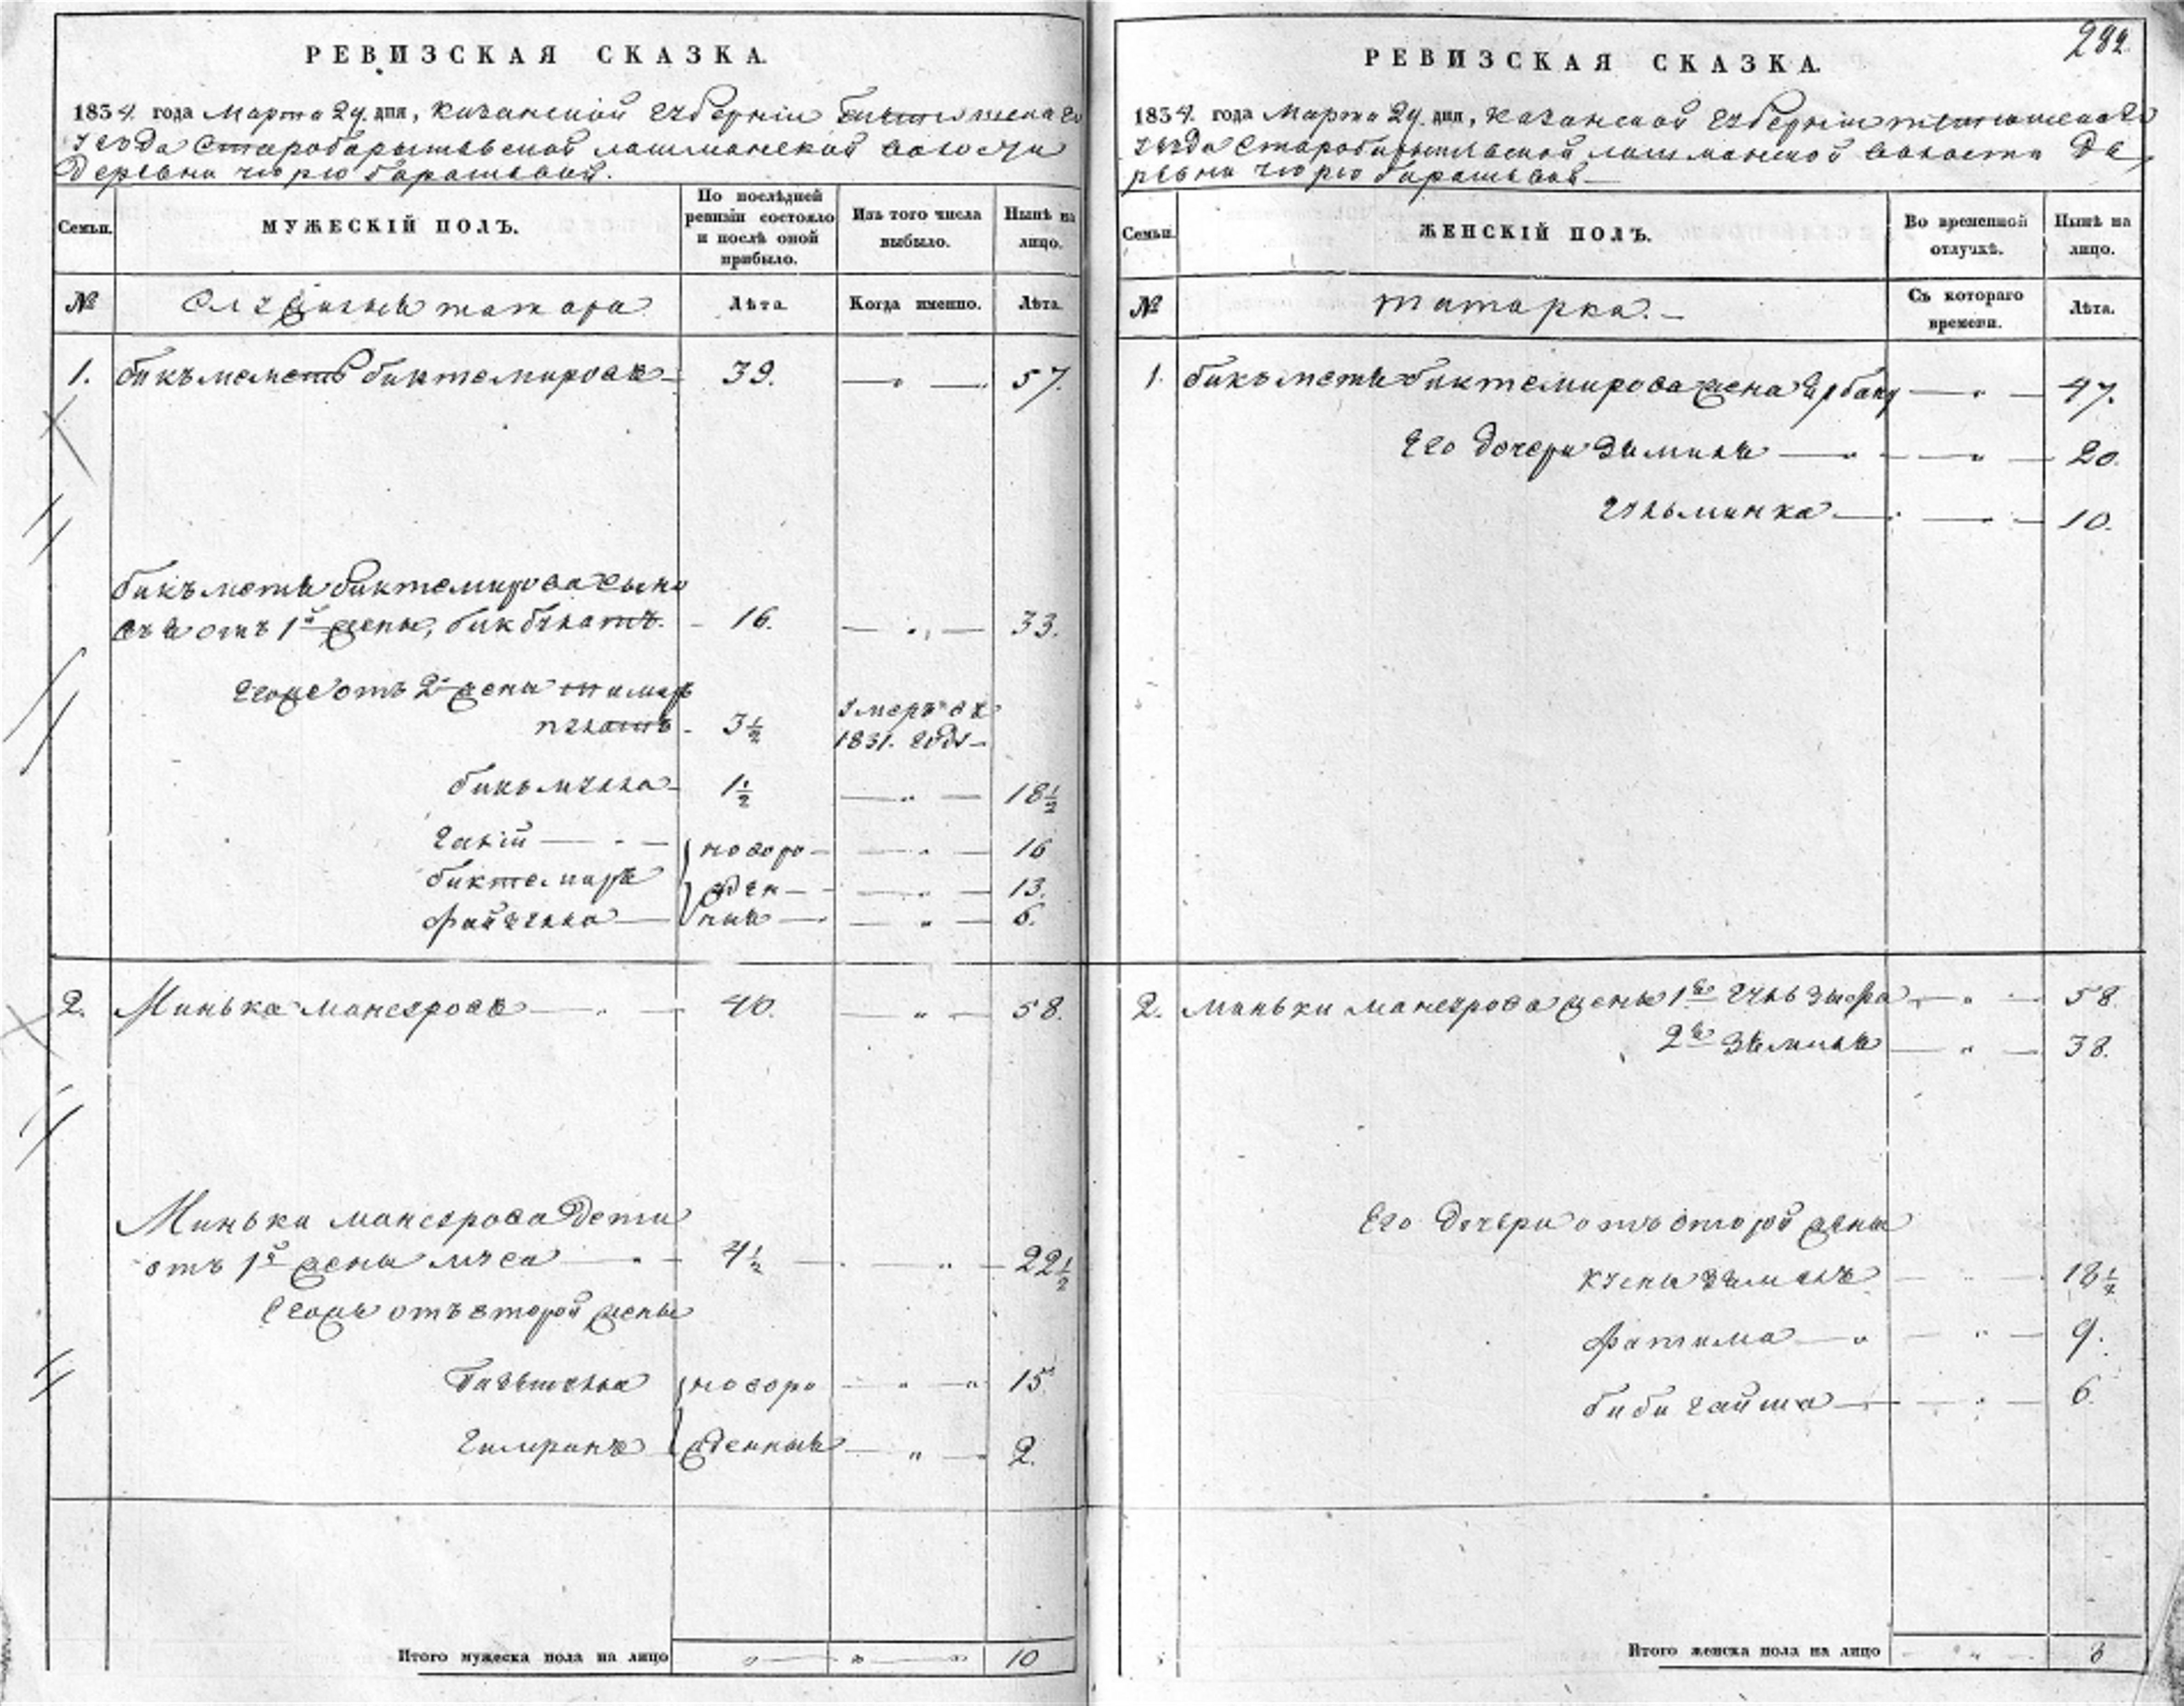 РЕВИЗСКАЯ СКАЗКА.
1834. года Марта 29. дня, Казанской Губернии
уезда Старобарышевской лашманской волости
Деревни чюрю барашевой.
Семьи.
МУЖЕСКІЙ ПОЛЪ.
По послѣдней ревизіи состояло и послѣ оной прибыло.
Изъ того числа выбыло.
Нынѣ на лицо.
№
Служилыя татара
Лѣта.
Когда именно.
Лѣта.
1. бикъмеметь биктемировъ 39. — „ — 57.
бикъметя биктемирова сыно
вья отъ 1й жены, бикбулатъ. 16. — „ — 33.
Егоже отъ 2й жены тимир
пулатъ 3½ умеръ въ
1831. году
бикъмулла 1½ — „ — 18½
галій — новоро — „ — 16
биктемиръ жден — „ — 13.
файзулла — ныя — „ — 6.
2. Минька мансуровъ — 40. — „ — 58.
Миньки мансурова дети
отъ 1й жены муса — 4½ — „ — 22½
Егоже отъ второй жены
новоро — „ — 15
жденныя — „ — 2.
Итого мужеска пола на лицо „ — „ — „ 10
282.
РЕВИЗСКАЯ СКАЗКА.
1834. года Марта 29. дня, Казанской Губернии
уезда Старобарышевской лашманской волости де
ревни чюрю барашевой
Семьи.
ЖЕНСКІЙ ПОЛЪ.
Во временной отлучкѣ.
Нынѣ на лицо.
№
татарка.
Съ котораго времени.
Лѣта.
1. бикъметя биктемирова жена — „ — 47.
Его дочери Зямиля — „ — 20.
Гульминка — „ — 10.
2. Миньки мансурова жены 1я Гульзюфа — „ — 58.
2я Зямиля — „ — 38.
Его дочери отъ второй жены
18½
Фатима — „ — 9.
биби гайша — „ — 6.
Итого женска пола на лицо — „ — 8